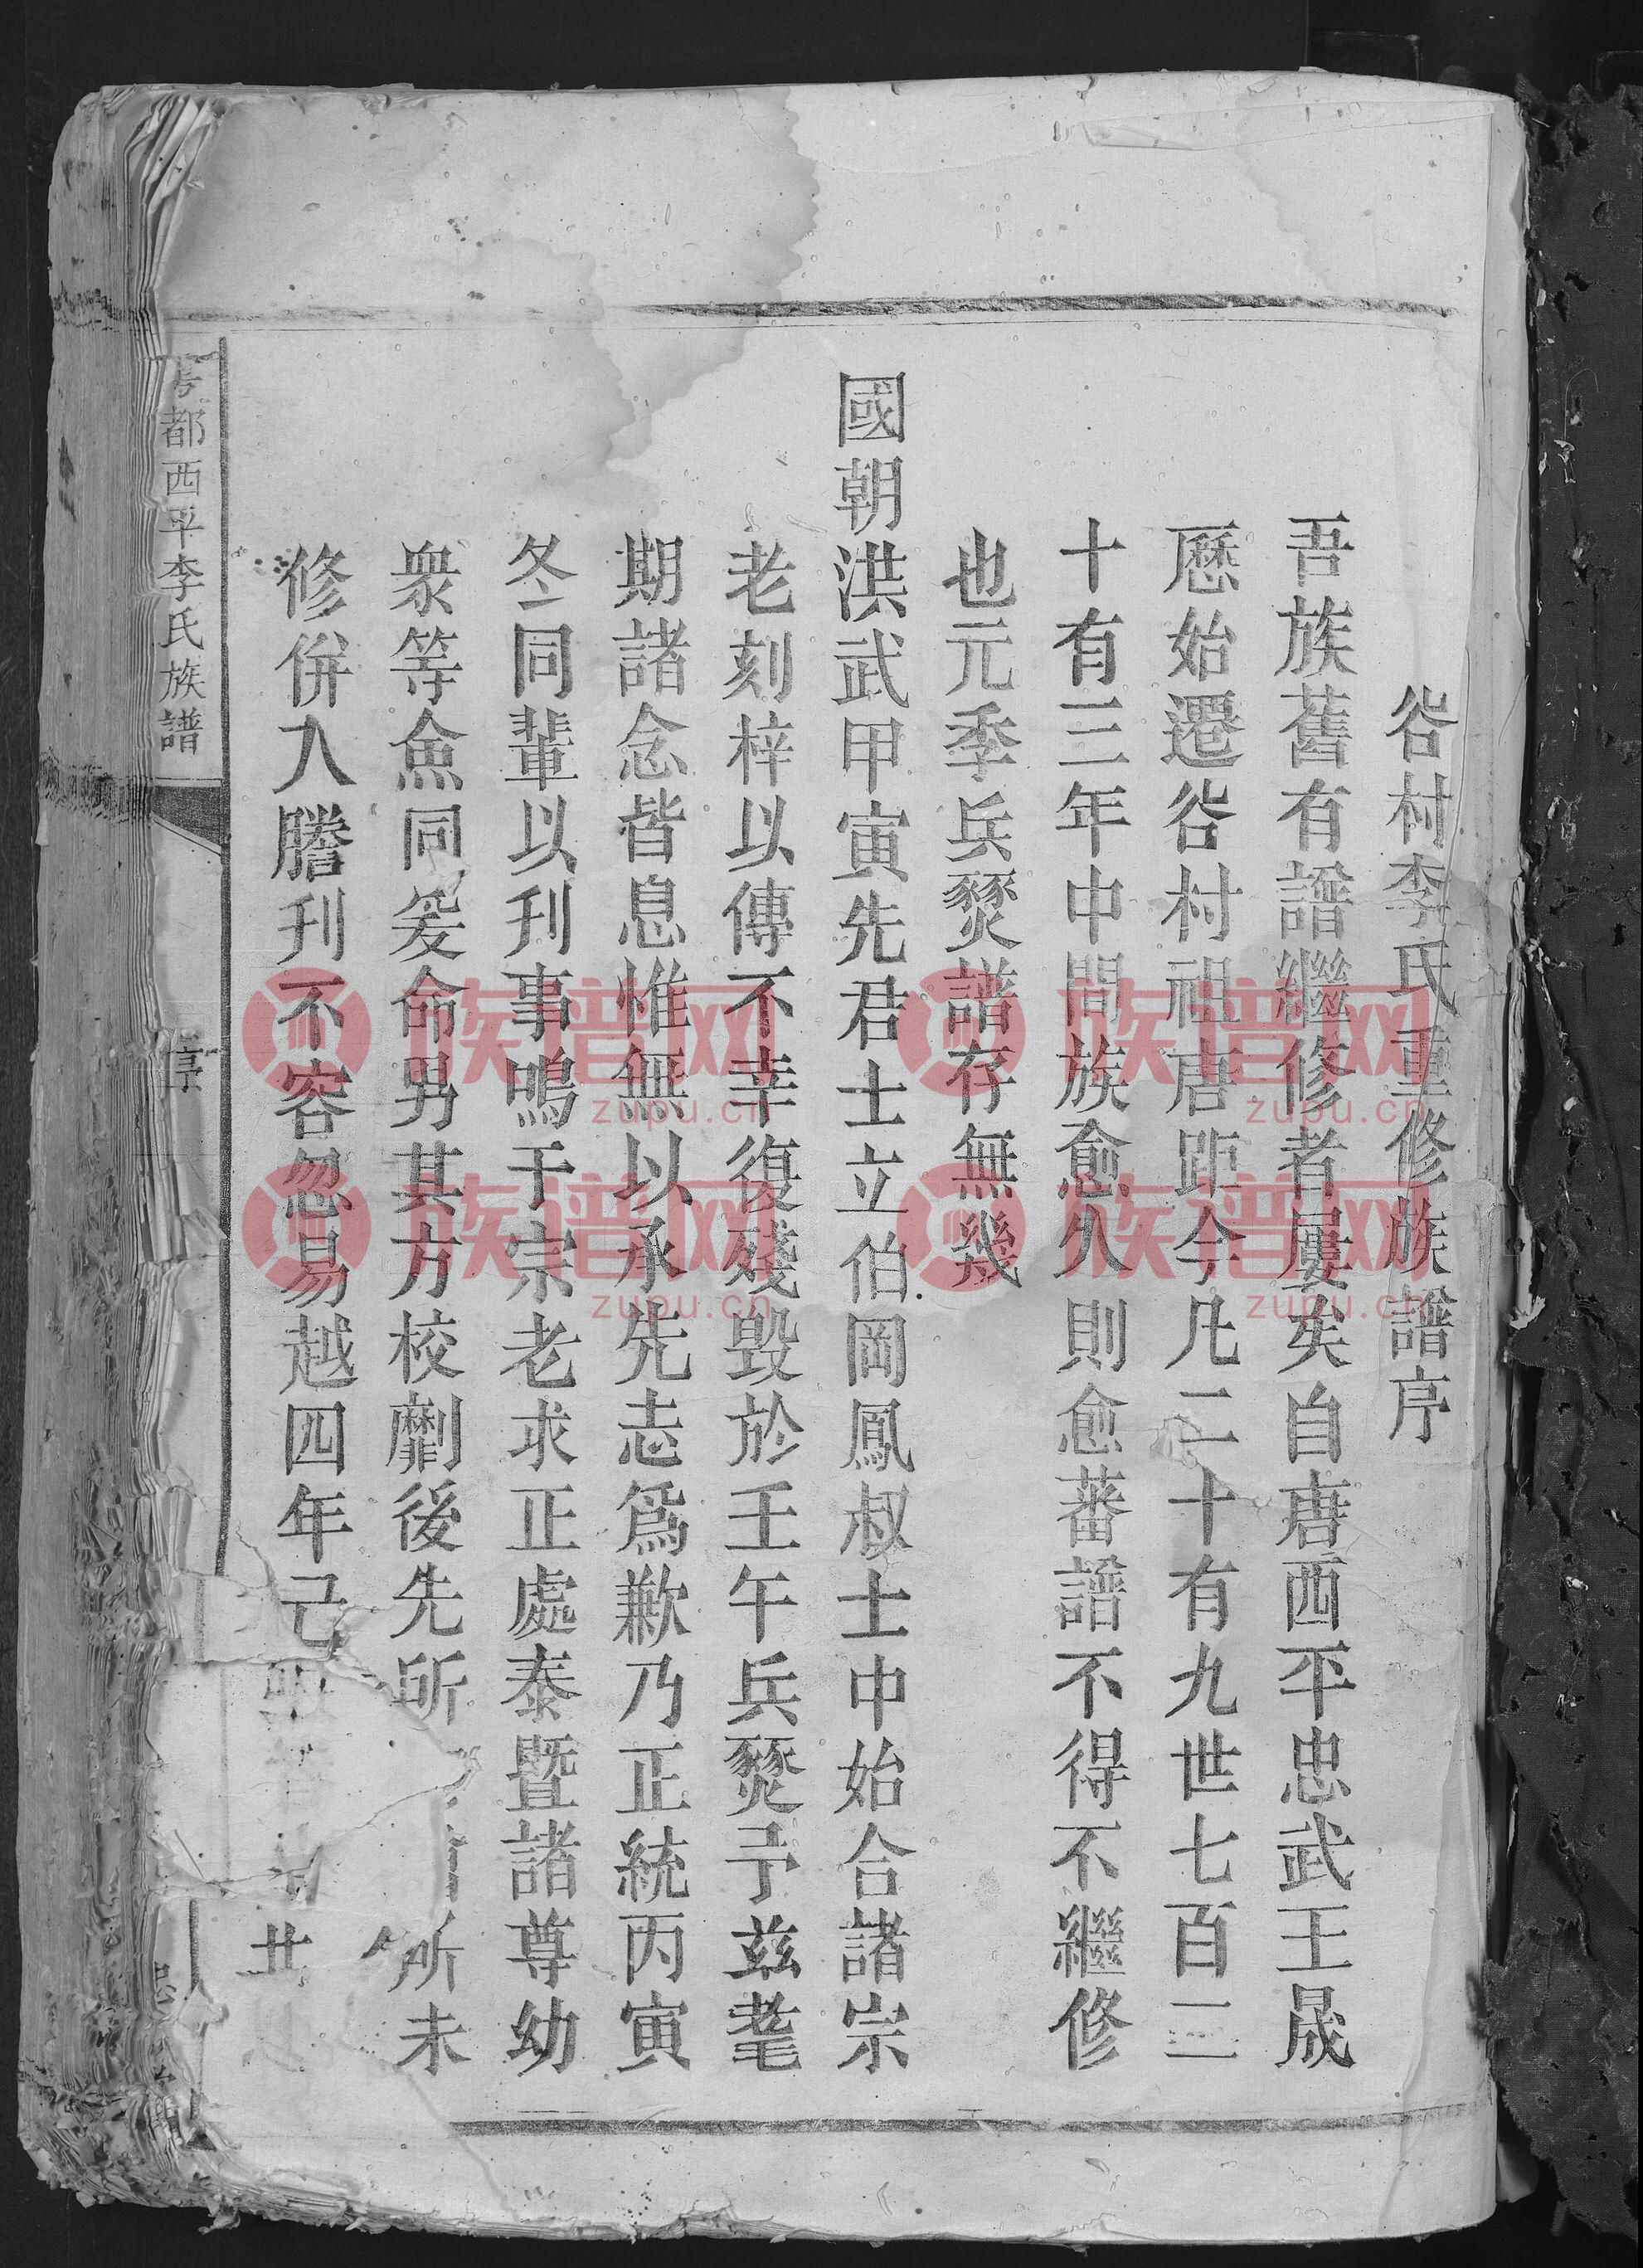 谷村李氏重修族譜序
吾族舊有譜繼修者屢矣自唐西平忠武王晟
歷始遷谷村祖唐距今凡二十有九世七百三
十有三年中間族愈久則愈蕃譜不得不繼修
也元季兵燹譜存無幾
國朝洪武甲寅先君士立伯岡鳳叔士中始合諸宗
老刻梓以傳不幸復殘毀於壬午兵燹予茲耄
期諸念皆息惟無以承先志為歉乃正統丙寅
冬同輩以刊事鳴于宗老求正處泰暨諸尊幼
衆等僉同爰命男其方校劘後先所 所未
修併入謄刊不容忽易越四年己
都西平李氏族譜
族谱网 zupu.cn
族谱网 zupu.cn
族谱网 zupu.cn
族谱网 zupu.cn